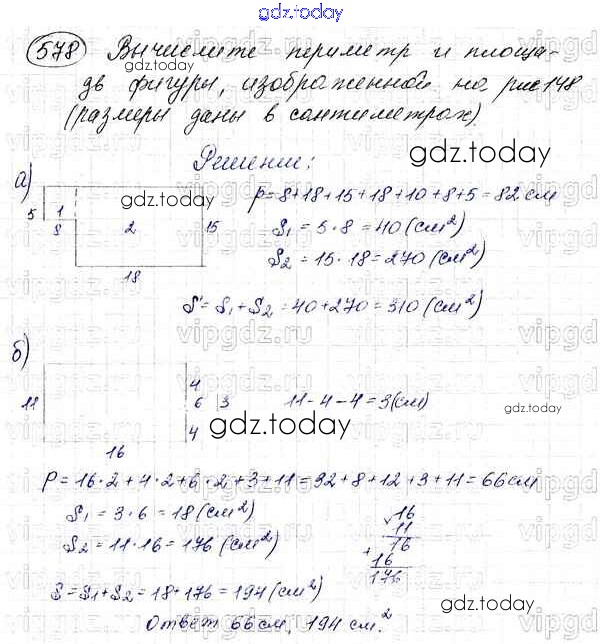 gdz.today
578 Вычислите периметр и площа-
дь фигуры, изображенной на рис 148
(размеры даны в сантиметрах).
gdz.today
Решение:
gdz.today
а)
gdz.today
5 1 8 2 15 18
P=8+18+15+18+10+8+5=82 см
S₁=5·8=40 (см²)
S₂=15·18=270 (см²)
S=S₁+S₂=40+270=310 (см²)
б)
11 4 6 3 4 16
11-4-4=3(см)
gdz.today
gdz.today
P=16·2+4·2+6·2+3+11=32+8+12+3+11=66см
S₁=3·6=18 (см²)
S₂=11·16=176 (см²)
16
11
16
+16
176
S=S₁+S₂=18+176=194(см²)
gdz.today
Ответ 66см, 194 см²
vipgdz.ru